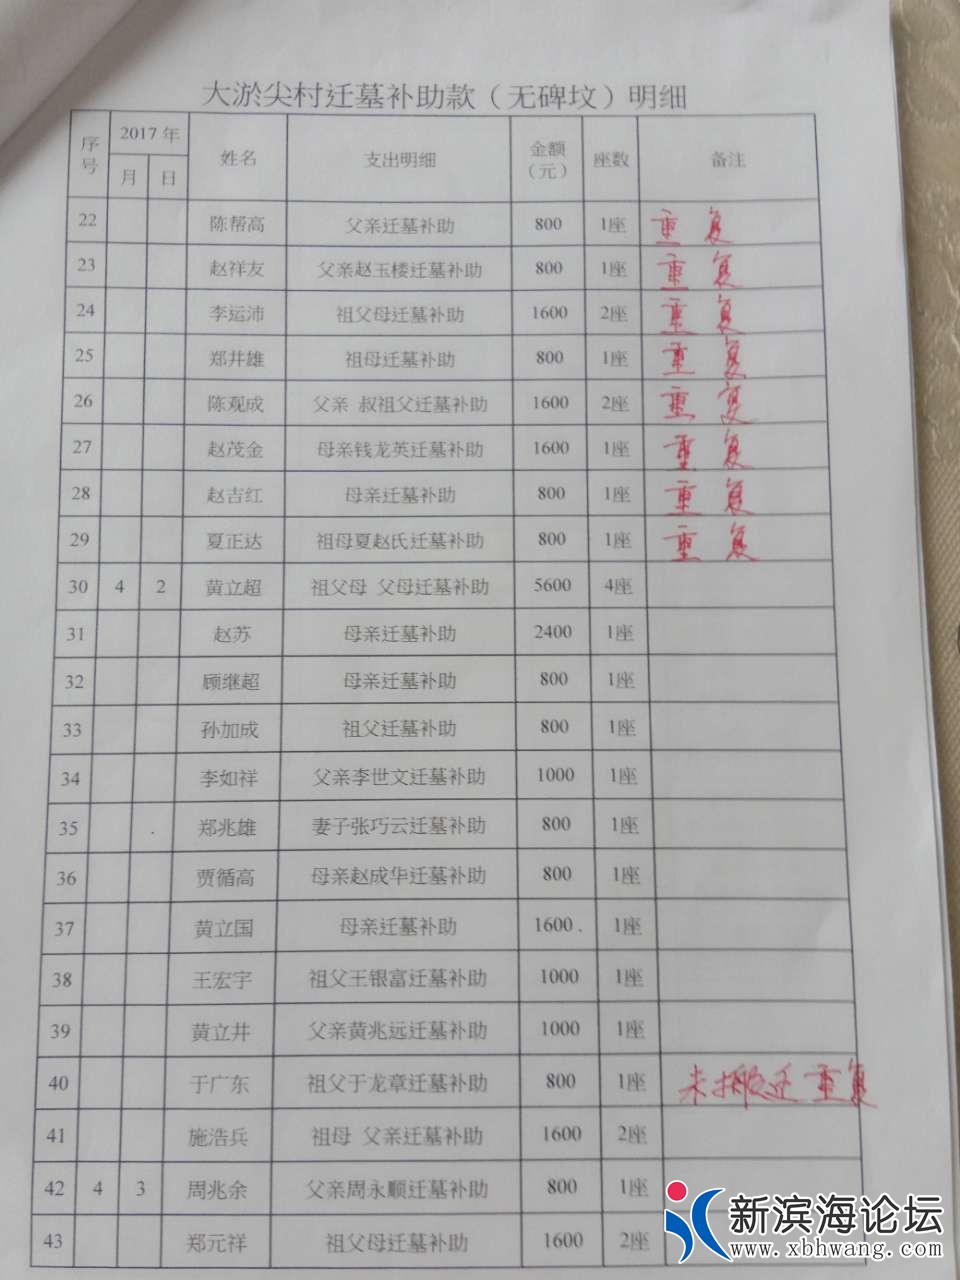 大淤尖村迁墓补助款（无碑坟）明细
序号 2017年 月 日 姓名 支出明细 金额（元） 座数 备注
22 陈帮高 父亲迁墓补助 800 1座 重复
23 赵祥友 父亲赵玉楼迁墓补助 800 1座 重复
24 李运沛 祖父母迁墓补助 1600 2座 重复
25 郑井雄 祖母迁墓补助 800 1座 重复
26 陈观成 父亲 叔祖父迁墓补助 1600 2座 重复
27 赵茂金 母亲钱龙英迁墓补助 1600 1座 重复
28 赵吉红 母亲迁墓补助 800 1座 重复
29 夏正达 祖母夏赵氏迁墓补助 800 1座 重复
30 4 2 黄立超 祖父母 父母迁墓补助 5600 4座
31 赵苏 母亲迁墓补助 2400 1座
32 顾继超 母亲迁墓补助 800 1座
33 孙加成 祖父迁墓补助 800 1座
34 李如祥 父亲李世文迁墓补助 1000 1座
35 郑兆雄 妻子张巧云迁墓补助 800 1座
36 贾循高 母亲赵成华迁墓补助 800 1座
37 黄立国 母亲迁墓补助 1600 1座
38 王宏宇 祖父王银富迁墓补助 1000 1座
39 黄立井 父亲黄兆远迁墓补助 1000 1座
40 于广东 祖父于龙章迁墓补助 800 1座 未搬迁重复
41 施浩兵 祖母 父亲迁墓补助 1600 2座
42 4 3 周兆余 父亲周永顺迁墓补助 800 1座
43 郑元祥 祖父母迁墓补助 1600 2座
新滨海论坛
www.xbhwang.com